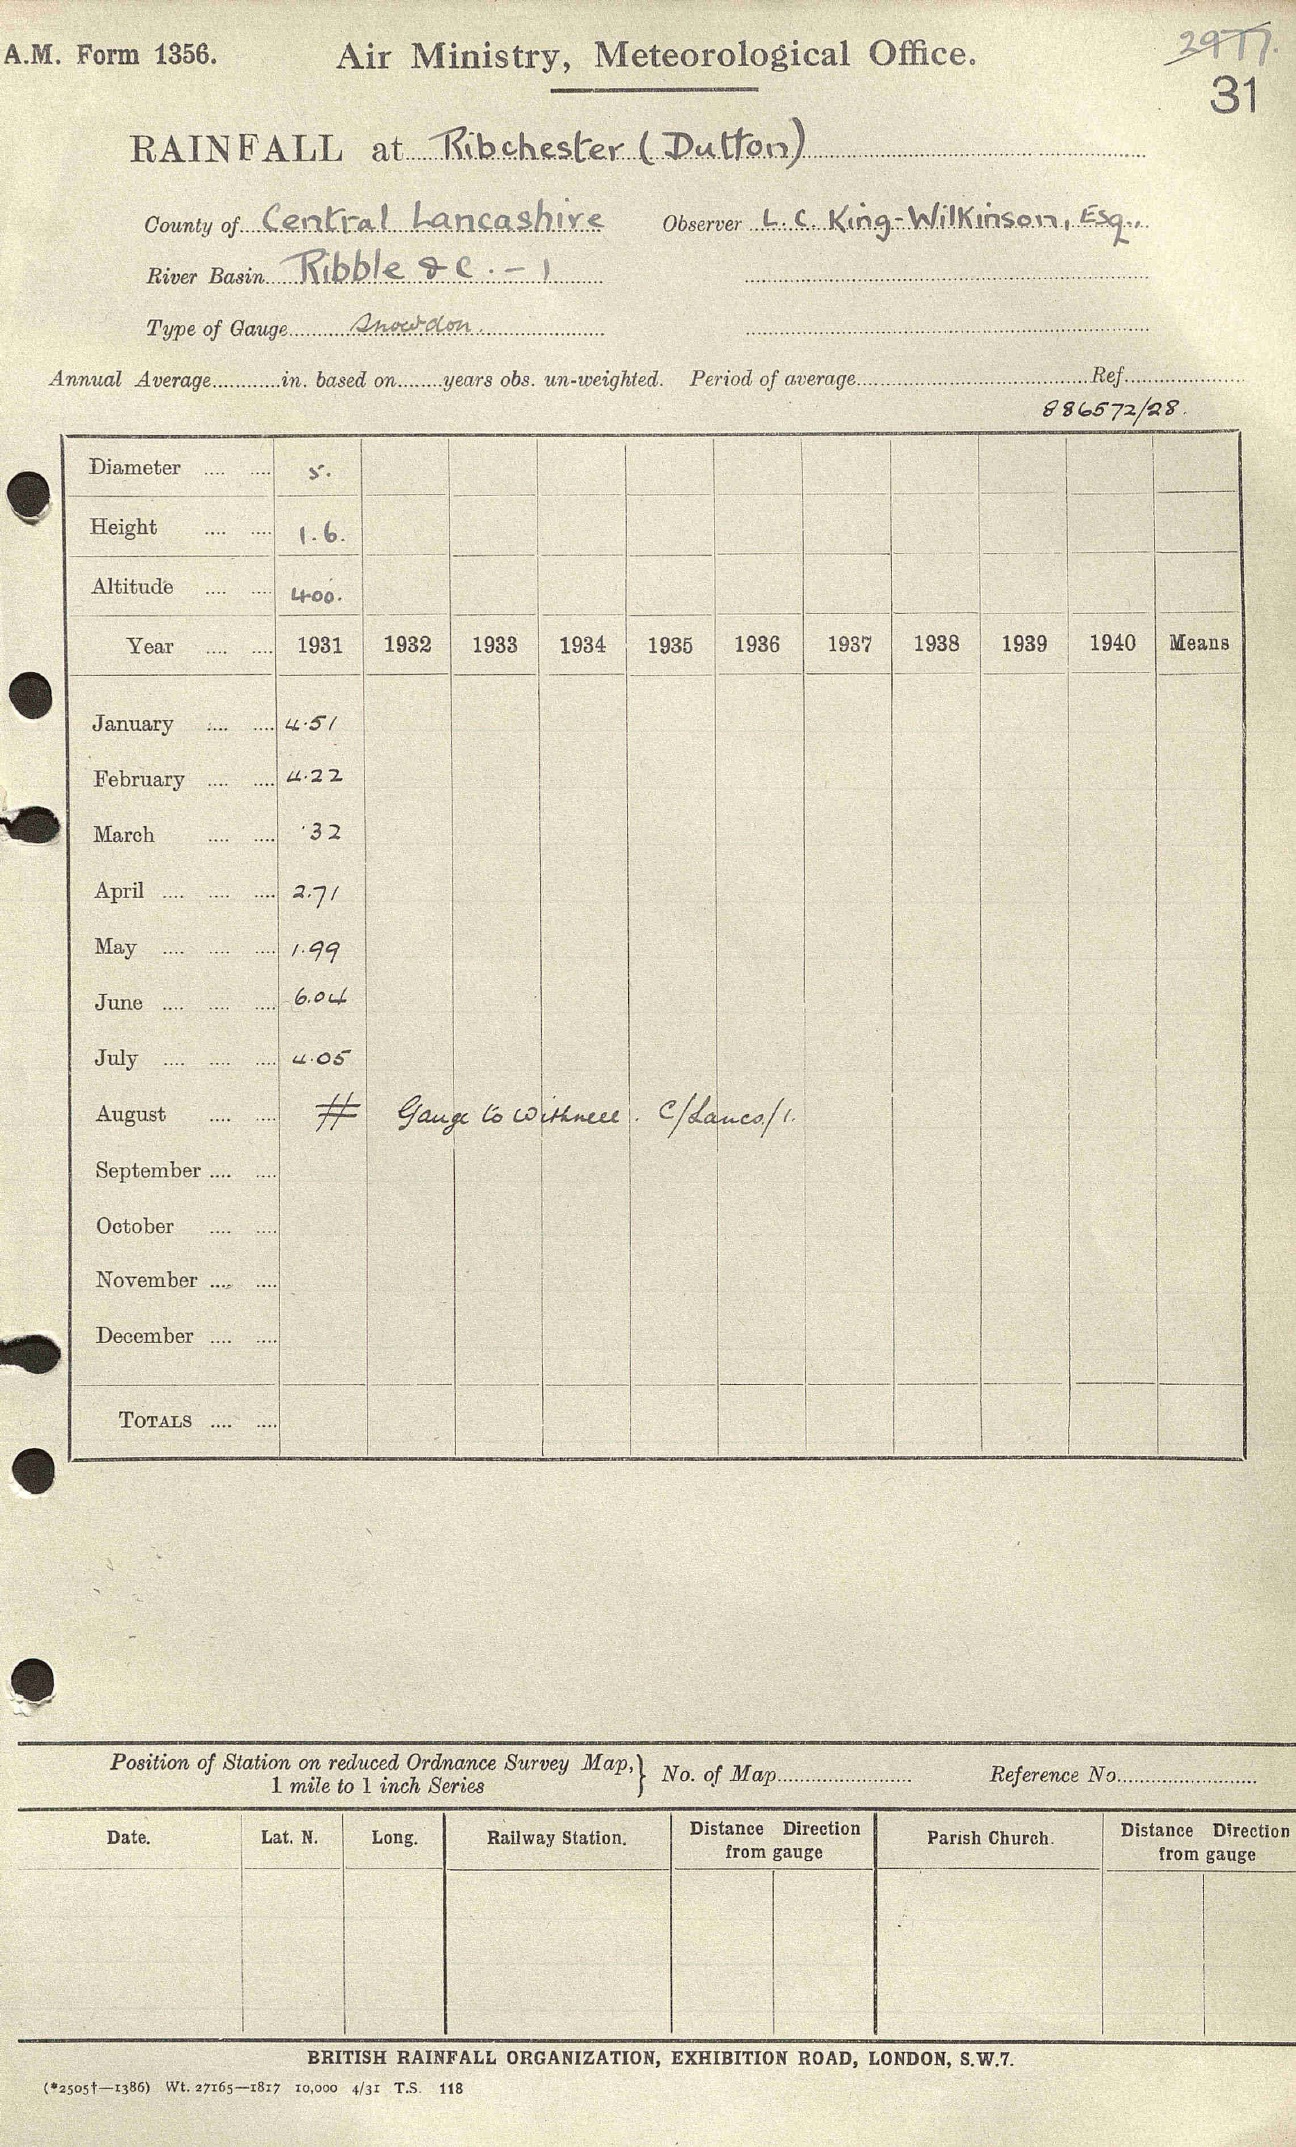 A.M. Form 1356.
Air Ministry, Meteorological Office.
2977.
31
RAINFALL at Ribchester (Dutton)
County of Central Lancashire Observer L. C. King-Wilkinson, Esq.,
River Basin Ribble & C. - 1
Type of Gauge Snowdon.
Annual Average............in. based on........years obs. un-weighted. Period of average............Ref............
886572/28.
Diameter .... .... 5.
Height .... .... 1.6.
Altitude .... .... 400.
Year .... .... 1931 1932 1933 1934 1935 1936 1937 1938 1939 1940 Means
January .... .... 4.51
February .... .... 4.22
March .... .... .32
April .... .... .... 2.71
May .... .... .... 1.99
June .... .... .... 6.04
July .... .... .... 4.05
August .... .... # Gauge to Withnell. C/Lancs/1.
September .... ....
October .... ....
November .... ....
December .... ....
TOTALS .... ....
Position of Station on reduced Ordnance Survey Map, } No. of Map............ Reference No............
1 mile to 1 inch Series
Date. Lat. N. Long. Railway Station. Distance Direction from gauge Parish Church. Distance Direction from gauge
BRITISH RAINFALL ORGANIZATION, EXHIBITION ROAD, LONDON, S.W.7.
(*2505†—1386) Wt. 27165—1817 10,000 4/31 T.S. 118